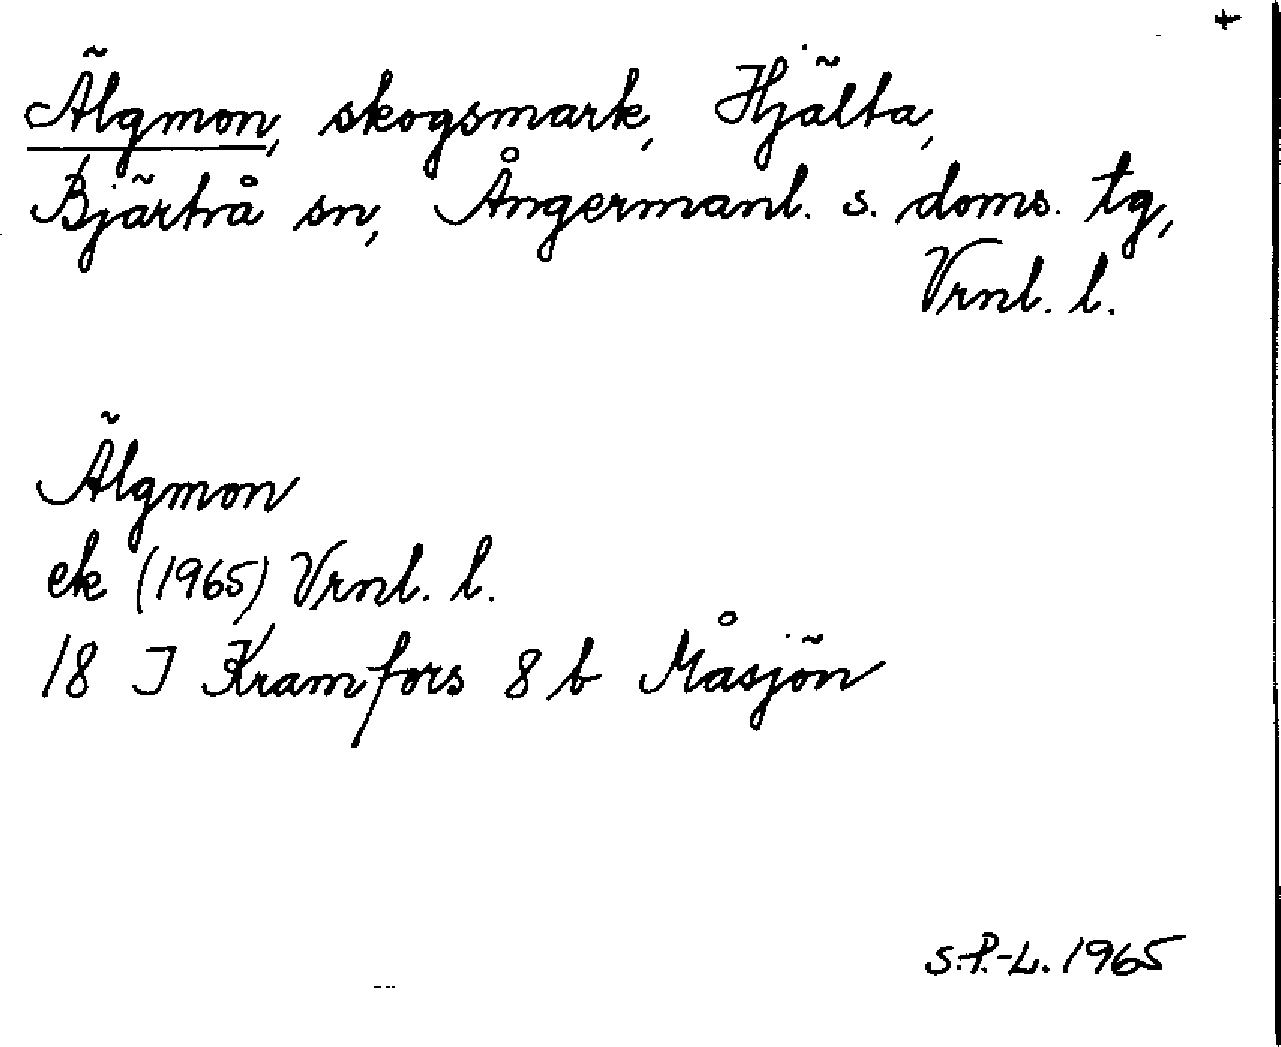 Älgmon, skogsmark, Hjälta,
Bjärtrå sn, Ångermanl. s. doms. tg,
Vrnl. l.
Älgmon
ek (1965) Vrnl. l.
18 J Kramfors 8 b Måsjön
S.-P.-L. 1965